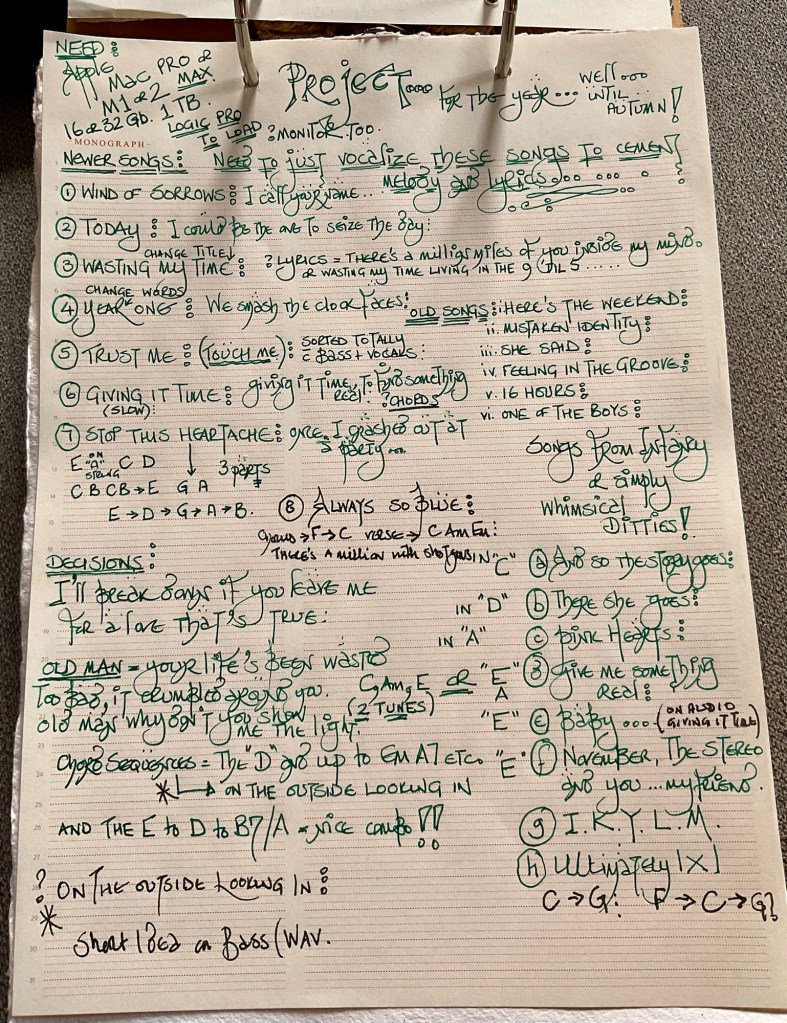 NEED:
Apple
MAC PRO or MAX
M1 or 2
16 or 32 Gb. 1 TB.
LOGIC PRO
TO LOAD ? MONITOR TOO.
PROJECT.... for the year... WELL... UNTIL... AUTUMN!
MONOGRAPH
NEWER SONGS: NEED to just vocalize these songs to cement
melody and lyrics...
① WIND OF SORROWS: I call your name...
② TODAY: I could be the one to seize the day:
CHANGE TITLE↓
③ WASTING MY TIME: ? LYRICS = THERE'S a million miles of you inside my mind.
or WASTING MY TIME LIVING IN THE
CHANGE WORDS
④ YEAR ONE: We smash the clock faces:
⑤ TRUST ME: (TOUCH ME): SORTED TOTALLY
c BASS + VOCALS:
⑥ GIVING IT TIME: giving it time, to find something real:
(SLOW): ?CHORDS
⑦ STOP THIS HEARTACHE: once I crashed out at
a party...
E ON "A" STRING C D ↓ 3 parts
C B CB→E G A
E→D→G→A→B.
OLD SONGS: i HERE'S THE WEEKEND:
ii. MISTAKEN IDENTITY:
iii. SHE SAID:
iv. FEELING IN THE GROOVE:
v. 16 HOURS:
vi. ONE OF THE BOYS:
⑧ ALWAYS SO BLUE:
→F→C VERSE→C Am Em:
THERE'S A million with shotguns IN "C"
Songs from Infancy
or simply
Whimsical
DITTIES!
DECISIONS:
I'll break down if you leave me
for a love that's TRUE:
OLD MAN = your life's been wasted
Too bad, it crumbled around you.
old man why don't you show
me the light.
C, Am, E OR "E" A
(2 TUNES)
Chord Sequences = The "D" and up to Em A7 etc.
* ↳ ON THE OUTSIDE LOOKING IN
AND THE E to D to B7/A = nice combo!!
ⓐ And so the story goes:
IN "D" ⓑ There she goes:
IN "A" ⓒ Pink Hearts:
ⓓ Give me something
Real:
"E" ⓔ Baby... (ON AUDIO
GIVING IT TIME)
"E" ⓕ November, The Stereo
and you... my friend.
ⓖ I.K.Y.L.M.
ⓗ Ultimately |X|
C→G: F→C→G?
? ON THE OUTSIDE LOOKING IN:
*
Short Idea on Bass (WAV.